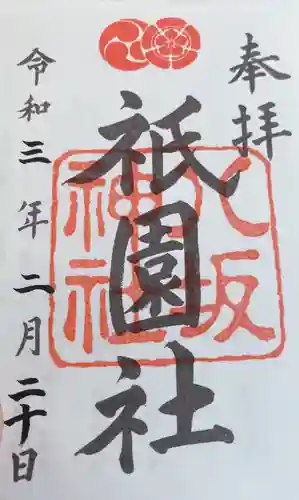 奉拝
八坂
神社
祇園社
令和三年二月二十日